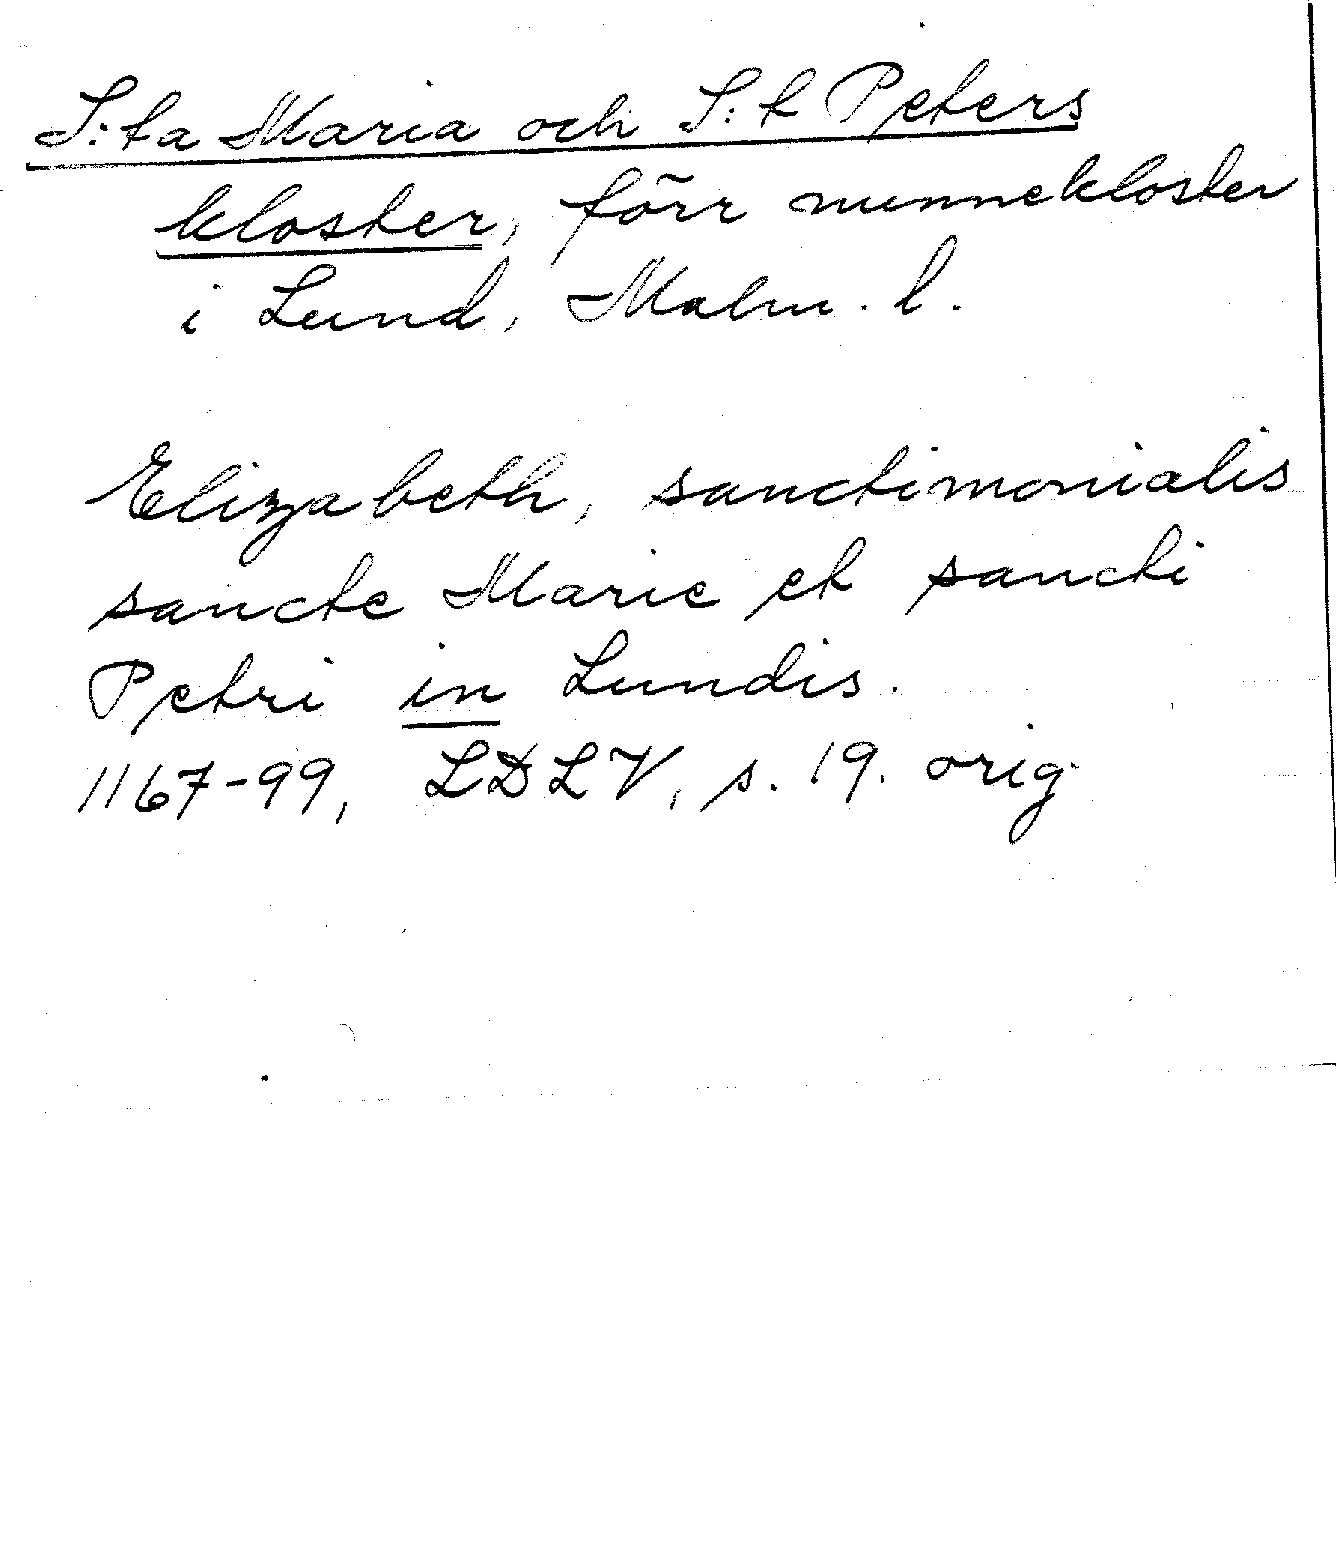 S:ta Maria och S:t Peters
kloster, förr nunnekloster
i Lund, Malm. l.
Elizabeth, sanctimonialis
sancte Marie et sancti
Petri in Lundis.
1167-99, LDLV, s. 19. orig